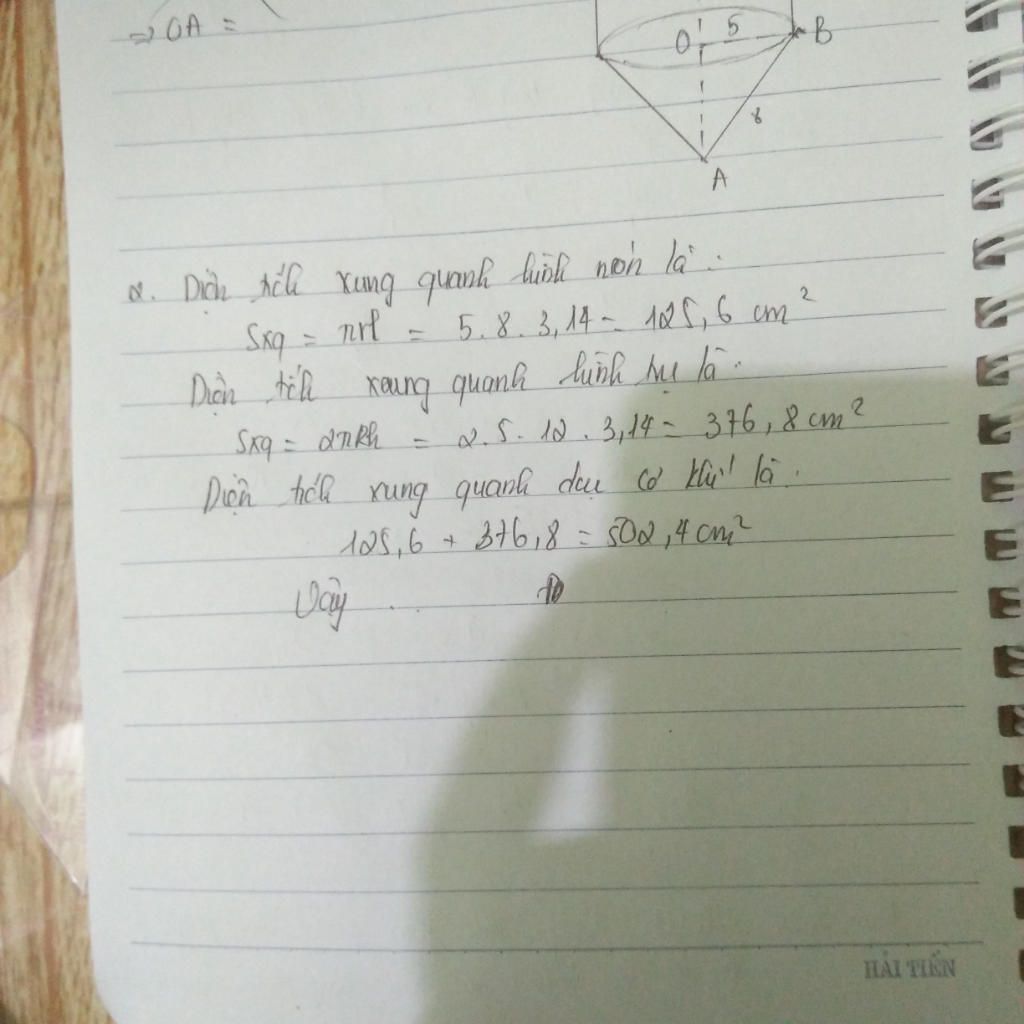 => OA =
O 5 B
8
A
2. Diện tích xung quanh hình nón là :
Sxq = πrl = 5. 8. 3,14 = 125,6 cm²
Diện tích xung quanh hình trụ là :
Sxq = 2πRh = 2. 5. 12. 3,14 = 376,8 cm²
Diện tích xung quanh dụng cơ khí là :
125,6 + 376,8 = 502,4 cm²
Vậy . .
HẢI TIẾN